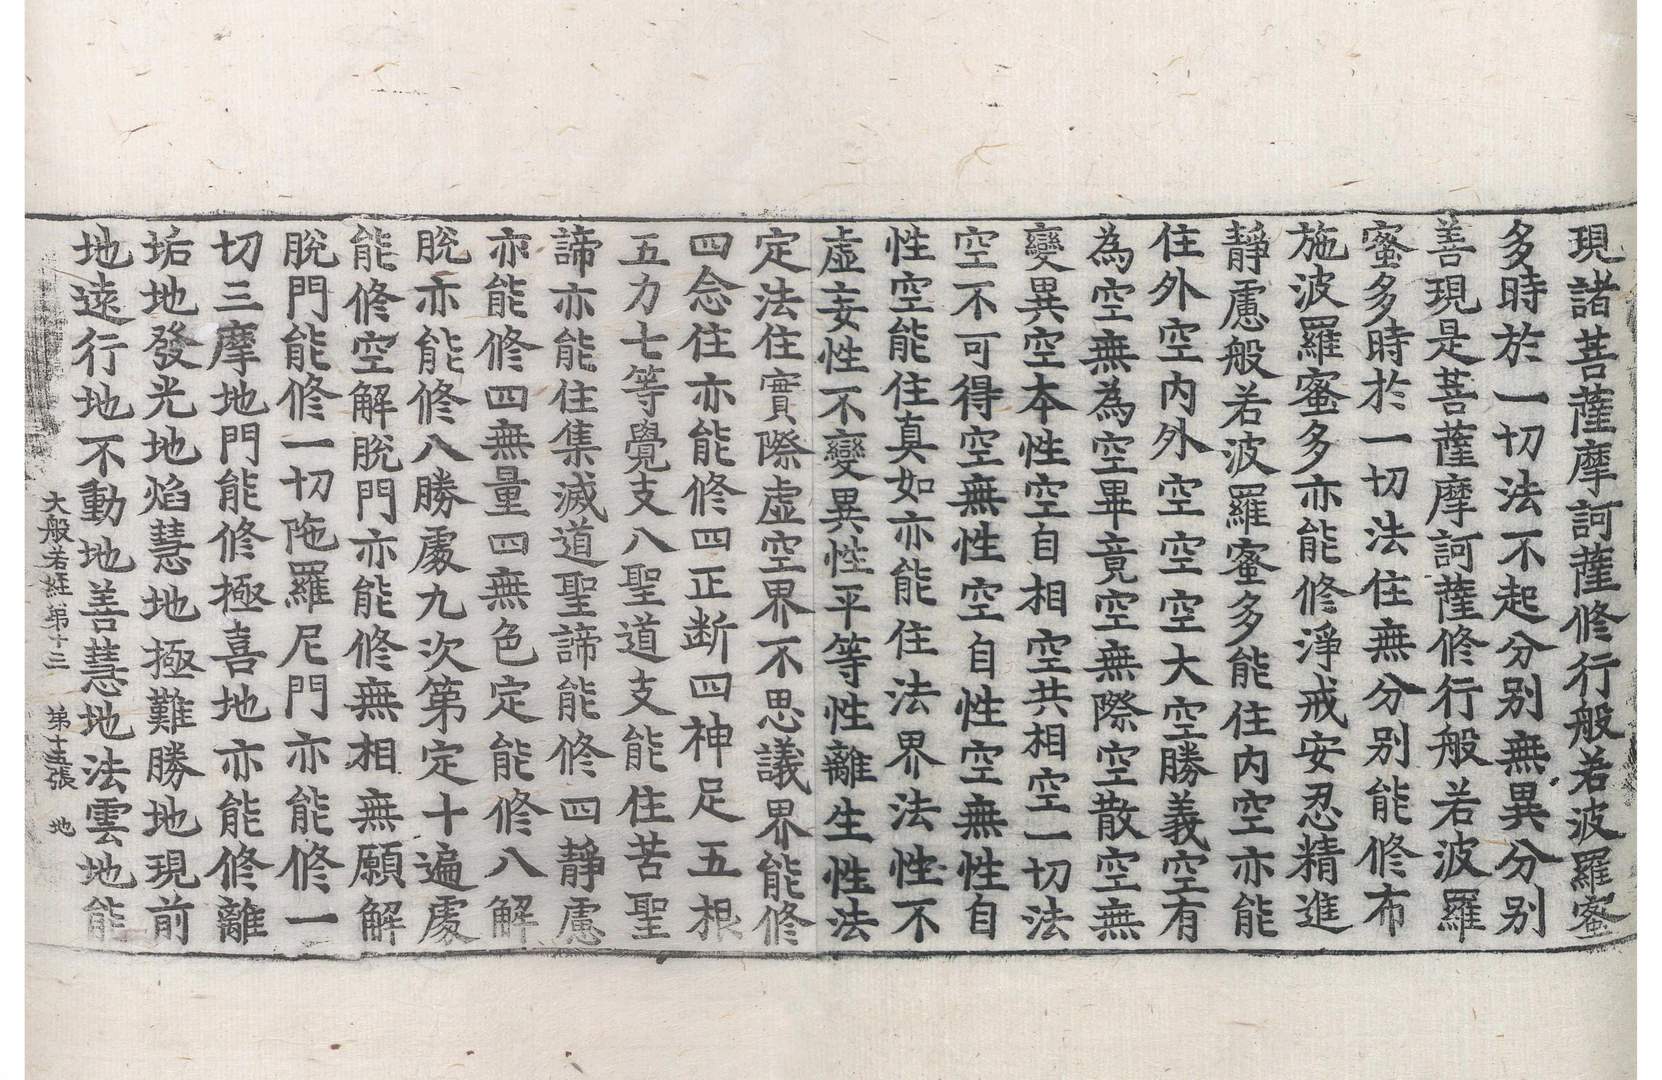 現諸菩薩摩訶薩修行般若波羅蜜
多時於一切法不起分別無異分別
善現是菩薩摩訶薩修行般若波羅
蜜多時於一切法住無分別能修布
施波羅蜜多亦能修淨戒安忍精進
靜慮般若波羅蜜多能住內空亦能
住外空內外空空空大空勝義空有
為空無為空畢竟空無際空散空無
變異空本性空自相空共相空一切法
空不可得空無性空自性空無性自
性空能住真如亦能住法界法性不
虛妄性不變異性平等性離生性法
定法住實際虛空界不思議界能修
四念住亦能修四正斷四神足五根
五力七等覺支八聖道支能住苦聖
諦亦能住集滅道聖諦能修四靜慮
亦能修四無量四無色定能修八解
脫亦能修八勝處九次第定十遍處
能修空解脫門亦能修無相無願解
脫門能修一切陁羅尼門亦能修一
切三摩地門能修極喜地亦能修離
垢地發光地焰慧地極難勝地現前
地遠行地不動地善慧地法雲地能
大般若經第十三 第十五張 地